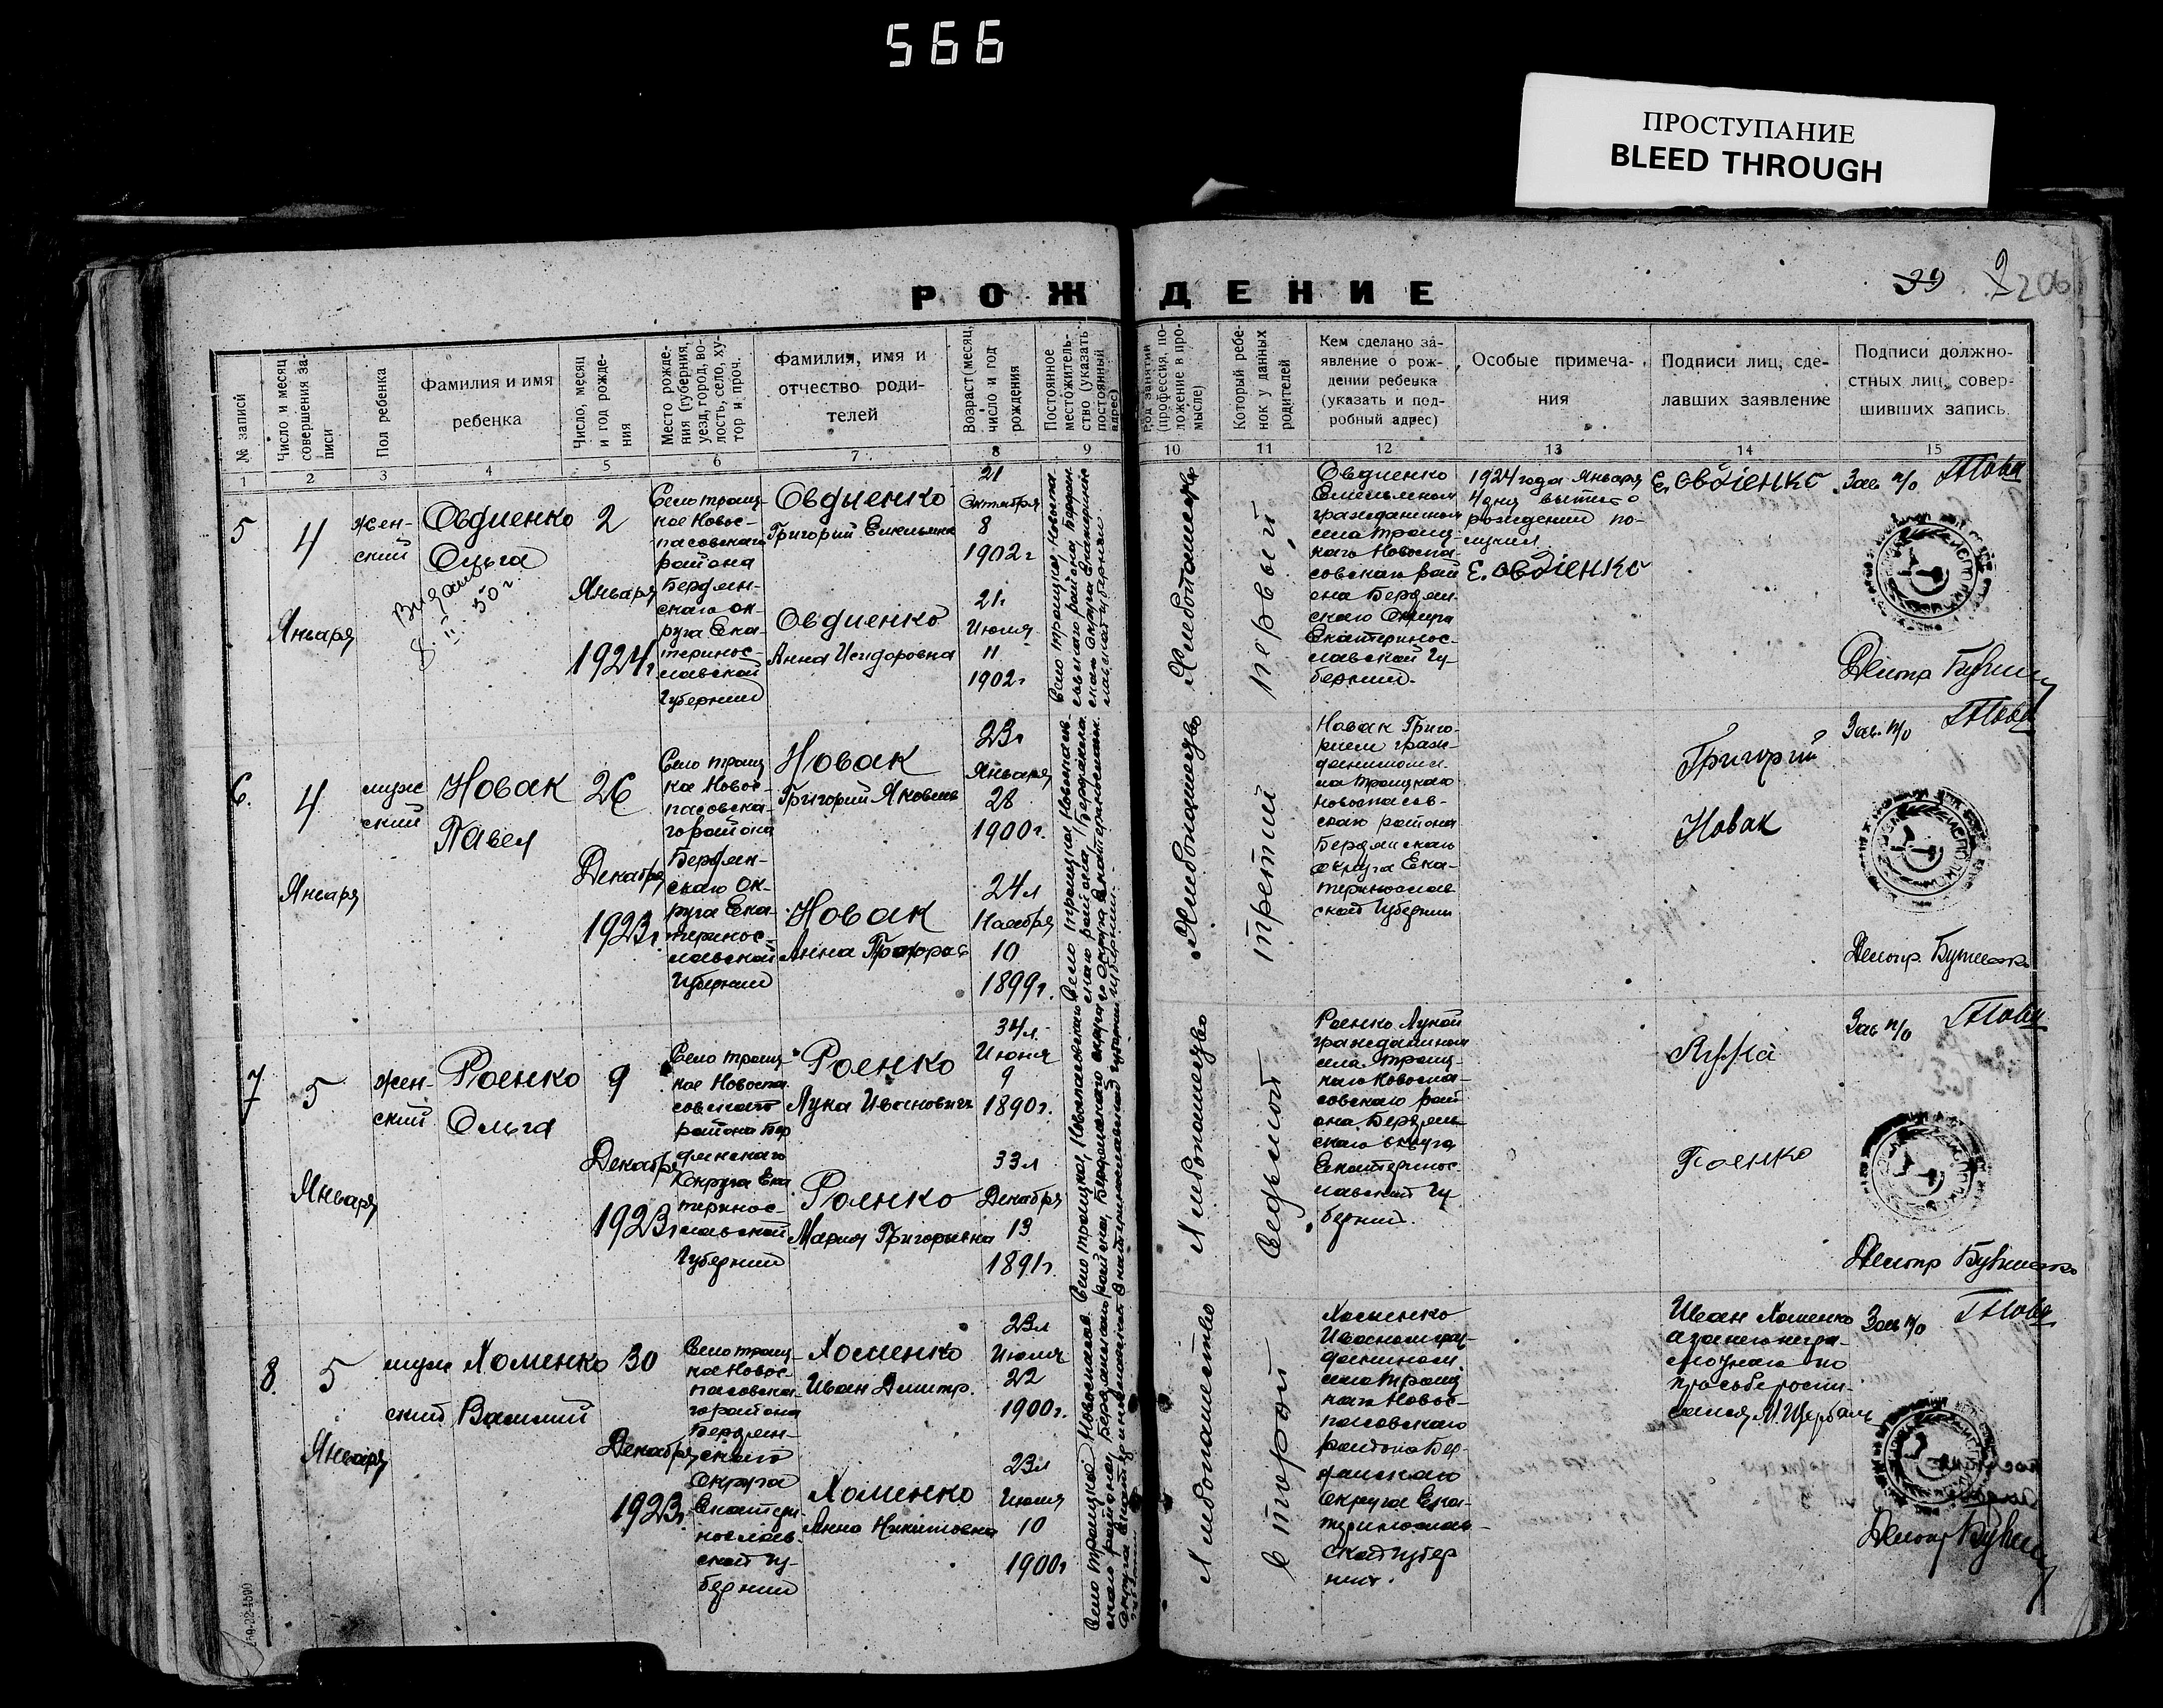 566
ПРОСТУПАНИЕ
BLEED THROUGH
РОЖДЕНИЕ
206
№ записи
Число и месяц совершения за-
писи
Пол ребенка
Фамилия и имя
ребенка
Число, месяц
и год рожде-
ния
Место рожде-
ния (губерния,
уезд, город, во-
лость, село, ху-
тор и проч.
Фамилия, имя и
отчество роди-
телей
Возраст (месяц,
число и год
рождения
Постоянное
местожитель-
ство (указать
постоянный
адрес)
Род занятий
(профессия, по-
ложение в про-
мысле)
Который ребе-
нок у данных
родителей
Кем сделано за-
явление о рож-
дении ребенка
(указать и под-
робный адрес)
Особые примеча-
ния
Подписи лиц, сде-
лавших заявление
Подписи должно-
стных лиц, совер-
шивших запись.
1 2 3 4 5 6 7 8 9 10 11 12 13 14 15
5
4
Января
жен-
ский
Овдиенко
Ольга
Видано
8. II. 50 г.
2
Января
1924г
Село троиц-
кое Новос-
пасовского
района
Бердян-
ского ок-
руга Ека-
теринос-
лавской
Губернии
Овдиенко
Григорий
Овдиенко
Анна Исидоровна
21
Октября
8
1902г
21г
Июля
11
1902г
Хлебопашество
первый
Овдиенко
гражданином
села Троиц-
каго Новоспа-
совскаго рай
она Бердян-
скаго Округа
Екатеринос-
лавской Гу-
бернии.
1924 года Января
4 дня выпись о
рождении по-
лучил
Е. Овдіенко
Е. Овдіенко
Зав. п/о
6.
4
Января
муж
ский
Новак
Павел
26
Декабря
1923г.
Село троиц
кое Новос-
пасовска-
го района
Бердян-
скаго Ок-
руга Ека-
теринос-
лавской
Губернии
Новак
Григорий Яковлев
Новак
Анна Прохоров
23г
Января
28
1900г.
24л
Ноября
10
1899г.
Хлебопашество
третий
Новак Григо-
рием граж-
данином се-
ла Троицкаго
Новоспасов-
скаго района
Бердянскаго
округа Ека-
теринослав
ской Губернии
Григорий
Новак
Зав. п/о
7
5
Января
жен-
ский
Роенко
Ольга
9
Декабря
1923г
Село троиц-
кое Новоспа
совскаго
района Бер
дянскаго
Округа Ека
теринос-
лавской
Губернии
Роенко
Лука Иванович
Роенко
Мария Григорьевна
34л
Июня
9
1890г.
33л
Декабря
13
1891г.
Хлебопашество
Седьмой
Роенко Лукой
гражданином
села Троиц-
каго Новоспа-
совскаго рай
она Бердян-
скаго округа
Екатеринос-
лавской Гу-
бернии.
Лука
Роенко
Зав п/о
8.
5
Января
муж
ский
Хоменко
Василий
30
Декабря
1923г.
Село троиц-
кое Новос-
пасовска-
го района
Бердян-
скаго
Округа
Екатери-
нослав-
ской Гу-
бернии
Хоменко
Иван Дмитр.
Хоменко
Анна Никитовна
23л
Июля
22
1900г.
23л
Июля
10
1900г
Хлебопашество
Второй
Хоменко
Иваном граж-
данином
села Троиц
каго Новос-
пасовскаго
района Бер-
дянскаго
Округа Ека-
теринослав-
ской Губер
нии.
Иван Хоменко
а за него негра-
мотнаго по
просьбе роспи-
сался М. Щербак
Зав п/о